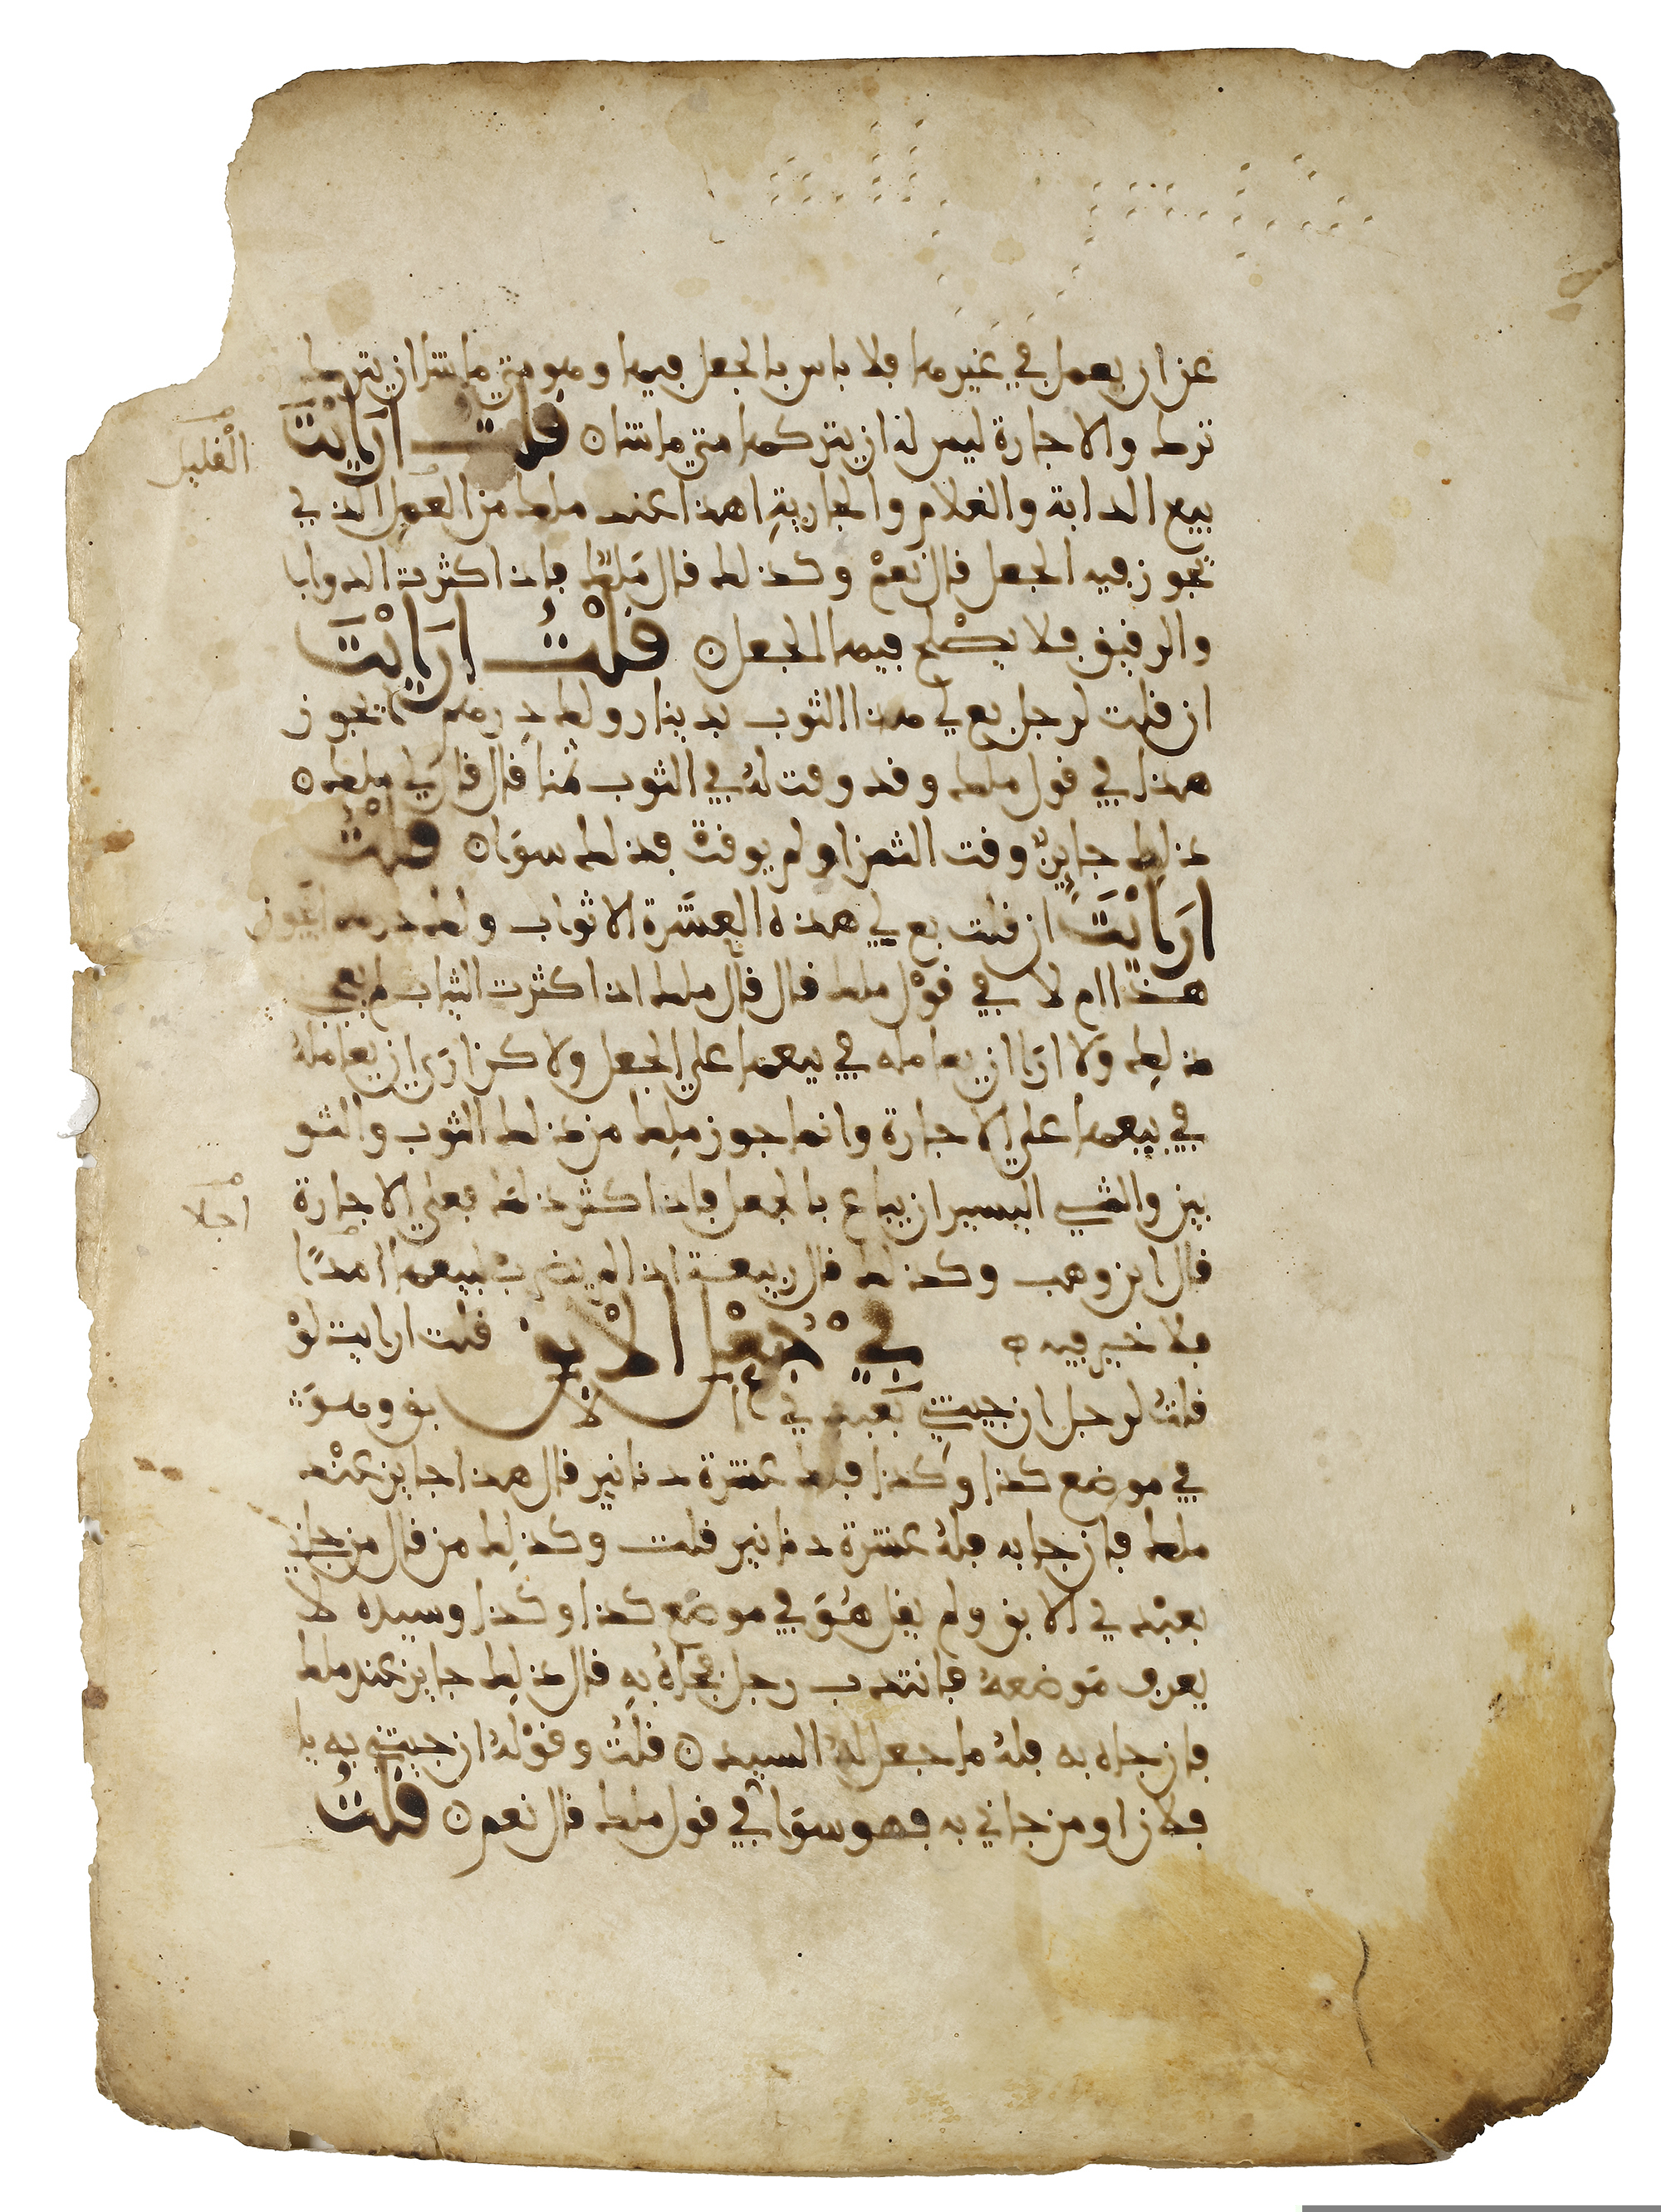 عن ان يعمل في غيرها فلا باس بالجعل فيها وهو متى ما شا ان يترك
ترك والاجارة ليس له ان يتركها متى ما شا ۞ قلت ارايت
القليل
بيع الدابة والغلام والجارية اهذا عند ملك من العمل الذي
يجوز فيه الجعل قال نعم وكذلك قال ملك فاذا كثرت الدواب
والرقيق فلا يصلح فيها الجعل ۞ قلت ارايت
ان قلت لرجل بع لي هذا الثوب بدينار ولك درهم ايجوز
هذا في قول ملك وقد وقت له في الثوب ثمنا قال قال لي ملك ۞
ذلك جايز وقت الثمن او لم يوقت فذلك سوا ۞ قلت
ارايت ان قلت بع لي هذه العشرة الاثواب ولك درهم ايجوز
هذا ام لا في قول ملك قال قال ملك اذا كثرت الثياب لم يجز
ذلك ولا ارا ان يعامله في بيعها على الجعل ولاكن ارى ان يعامله
في بيعها على الاجارة وانما جوز ملك من ذلك الثوب والثو
بين والشي اليسير ان يباع بالجعل فاذا كثر ذلك فعلى الاجارة
اجلا
قال ابن وهب وكذلك قال ربيعة اذا لم يضرب لبيعها امدا
فلا خير فيه ۞ في جعل الابق قلت ارايت لو
قلت لرجل ان جيتني بعبدي الابق وهو
في موضع كذا وكذا فلك عشرة دنانير قال هذا جايز عند
ملك فان جا به فله عشرة دنانير قلت وكذلك من قال من جاني
بعبدي الابق ولم يقل هو في موضع كذا وكذا وسيده لا
يعرف موضعه فانتدب رجل فجاه به قال ذلك جايز عند ملك
فان جاه به فله ما جعل له السيد ۞ قلت وقوله ان جيتني به يا
فلان او من جاني به فهو سوا في قول ملك قال نعم ۞ قلت